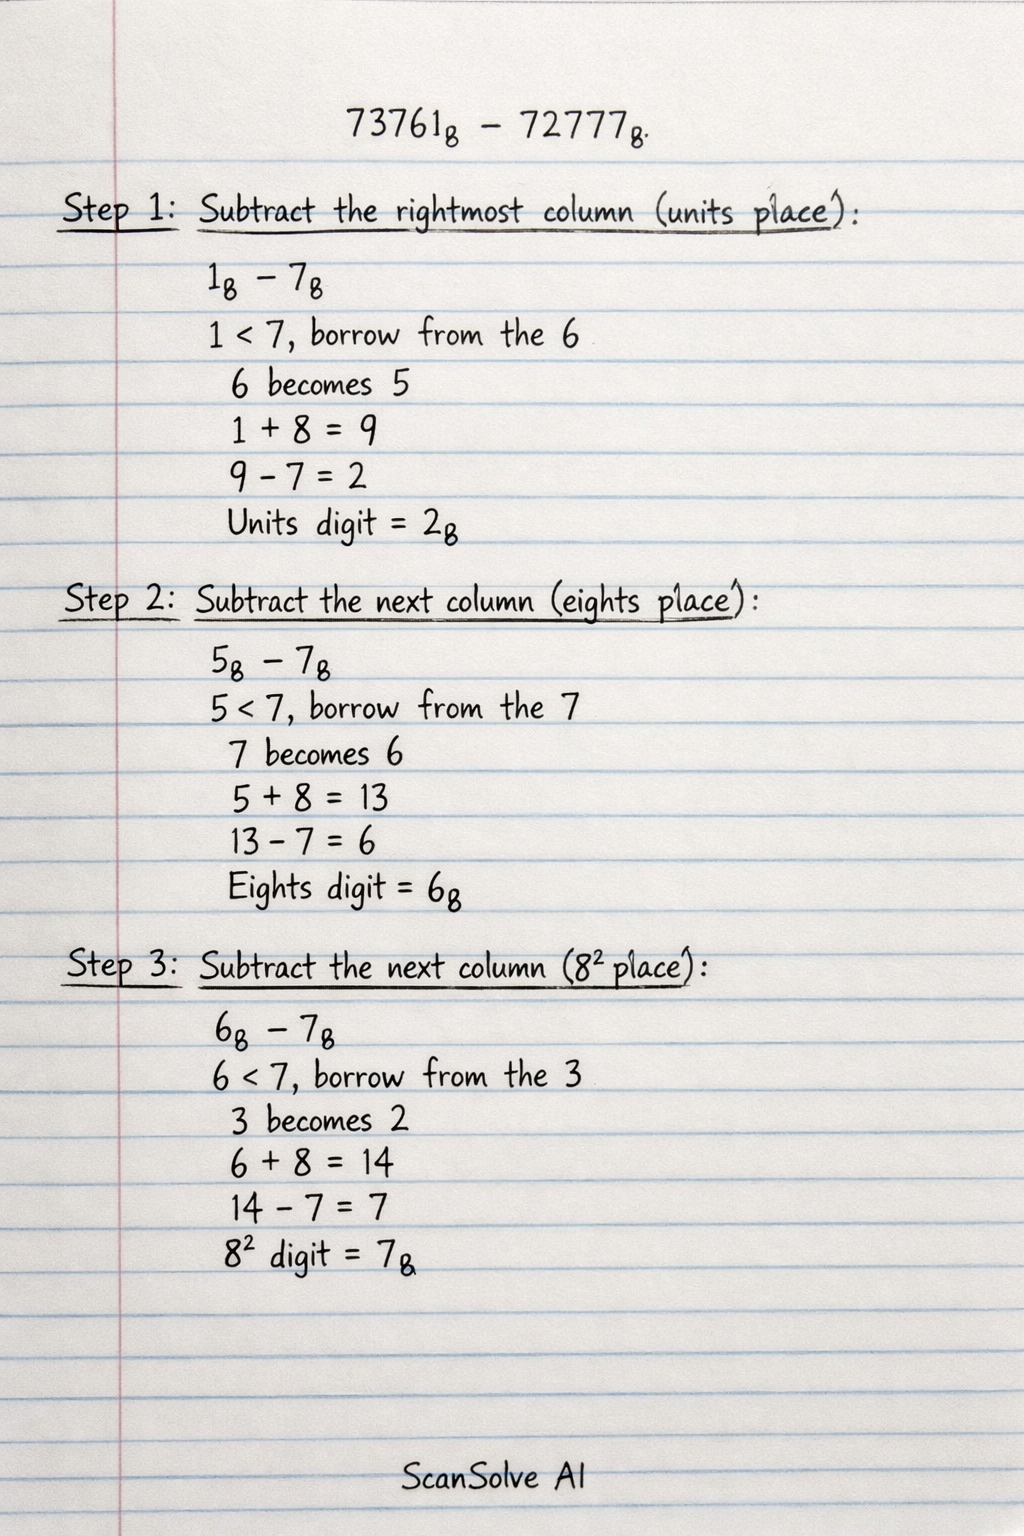 73761₈ − 72777₈.
Step 1: Subtract the rightmost column (units place):
1₈ − 7₈
1 < 7, borrow from the 6
6 becomes 5
1 + 8 = 9
9 − 7 = 2
Units digit = 2₈
Step 2: Subtract the next column (eights place):
5₈ − 7₈
5 < 7, borrow from the 7
7 becomes 6
5 + 8 = 13
13 − 7 = 6
Eights digit = 6₈
Step 3: Subtract the next column (8² place):
6₈ − 7₈
6 < 7, borrow from the 3
3 becomes 2
6 + 8 = 14
14 − 7 = 7
8² digit = 7₈
ScanSolve AI